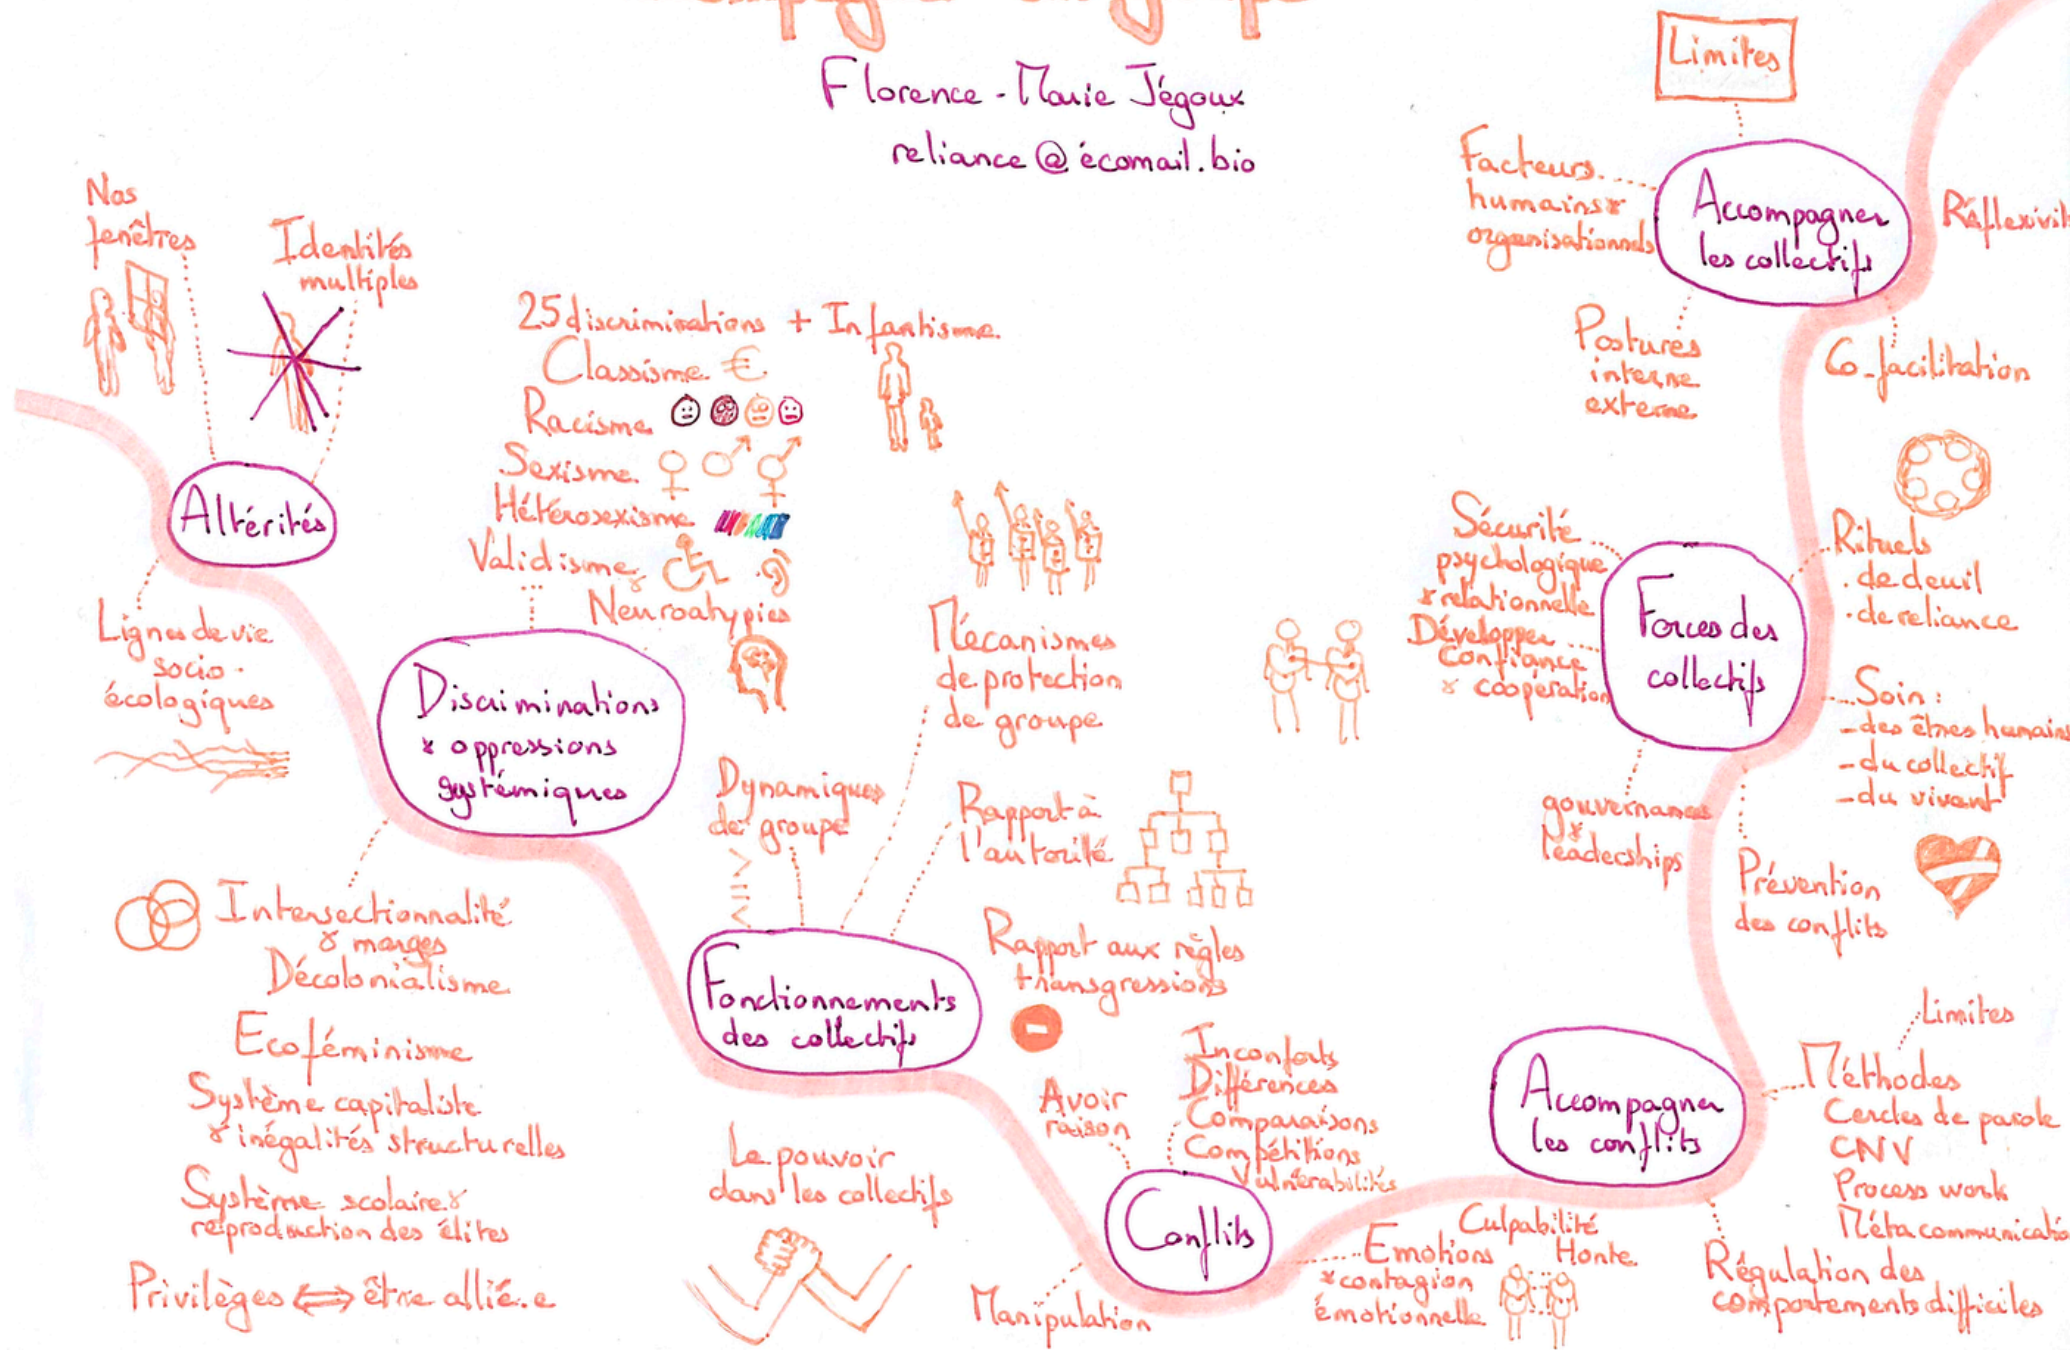 Florence-Marie Jégoux
reliance@écomail.bio
Nos
fenêtres
Identités
multiples
Altérités
Lignes de vie
socio-
écologiques
25 discriminations + Infantisme
Classisme €
Racisme
Sexisme
Hétérosexisme
Validisme &
Neuroatypies
Discriminations
& oppressions
systémiques
Intersectionnalité
& marges
Décolonialisme
Ecoféminisme
Système capitaliste
& inégalités structurelles
Système scolaire &
reproduction des élites
Privilèges ⇔ être allié.e
Dynamiques
de groupe
Mécanismes
de protection
de groupe
Rapport à
l'autorité
Rapport aux règles
transgressions
Fonctionnements
des collectifs
Le pouvoir
dans les collectifs
Avoir
raison
Inconforts
Différences
Comparaisons
Compétitions
Vulnérabilités
Conflits
Manipulation
Culpabilité
Emotions Honte
& contagion
émotionnelle
Accompagner
les conflits
Limites
Méthodes
Cercles de parole
CNV
Process work
Métacommunicatio
Régulation des
comportements difficiles
Sécurité
psychologique
& relationnelle
Développer
Confiance
& coopération
Forces des
collectifs
Rituels
. de deuil
. de reliance
Soin :
- des êtres humains
- du collectif
- du vivant
gouvernances
&
leaderships
Prévention
des conflits
Limites
Facteurs
humains &
organisationnels
Accompagner
les collectifs
Réflexivit
Postures
interne
externe
Co-facilitation